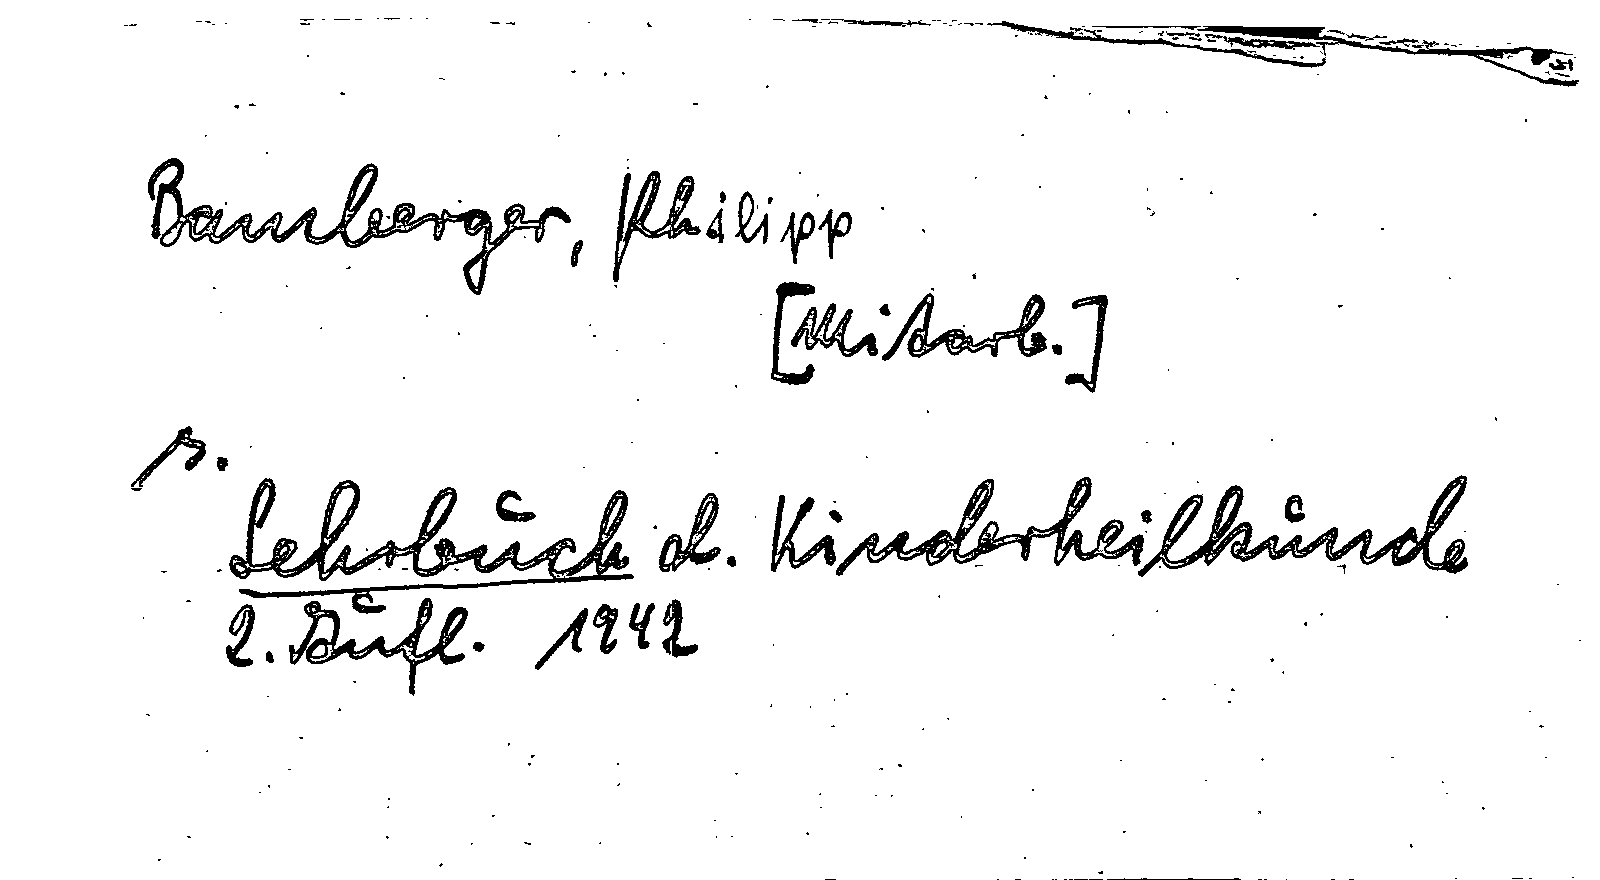 Bamberger, Philipp
[Mitarb.]
s.
Lehrbuch d. Kinderheilkunde
2. Aufl. 1942